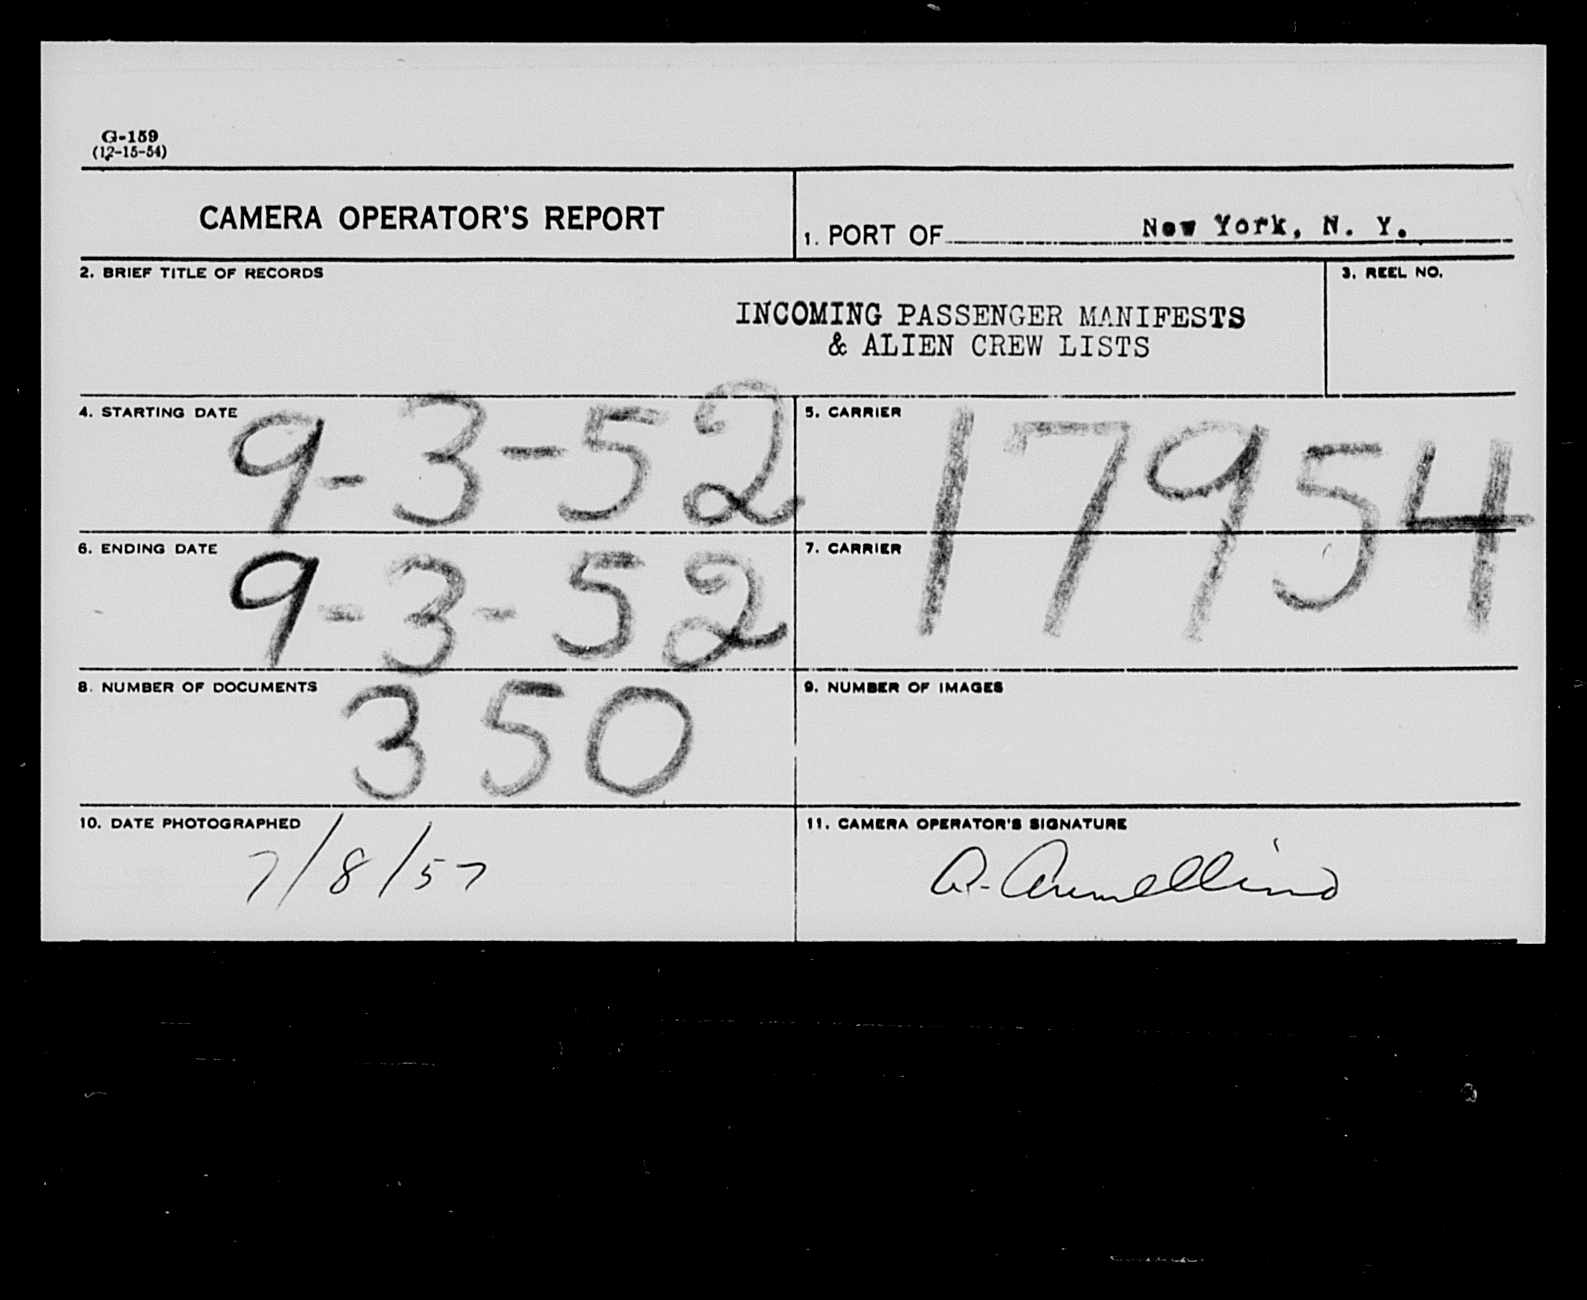 G-159
(12-15-54)
CAMERA OPERATOR'S REPORT
1. PORT OF New York, N. Y.
2. BRIEF TITLE OF RECORDS
INCOMING PASSENGER MANIFESTS
& ALIEN CREW LISTS
3. REEL NO.
4. STARTING DATE
9-3-52
5. CARRIER
17954
6. ENDING DATE
9-3-52
7. CARRIER
8. NUMBER OF DOCUMENTS
350
9. NUMBER OF IMAGES
10. DATE PHOTOGRAPHED
7/8/57
11. CAMERA OPERATOR'S SIGNATURE